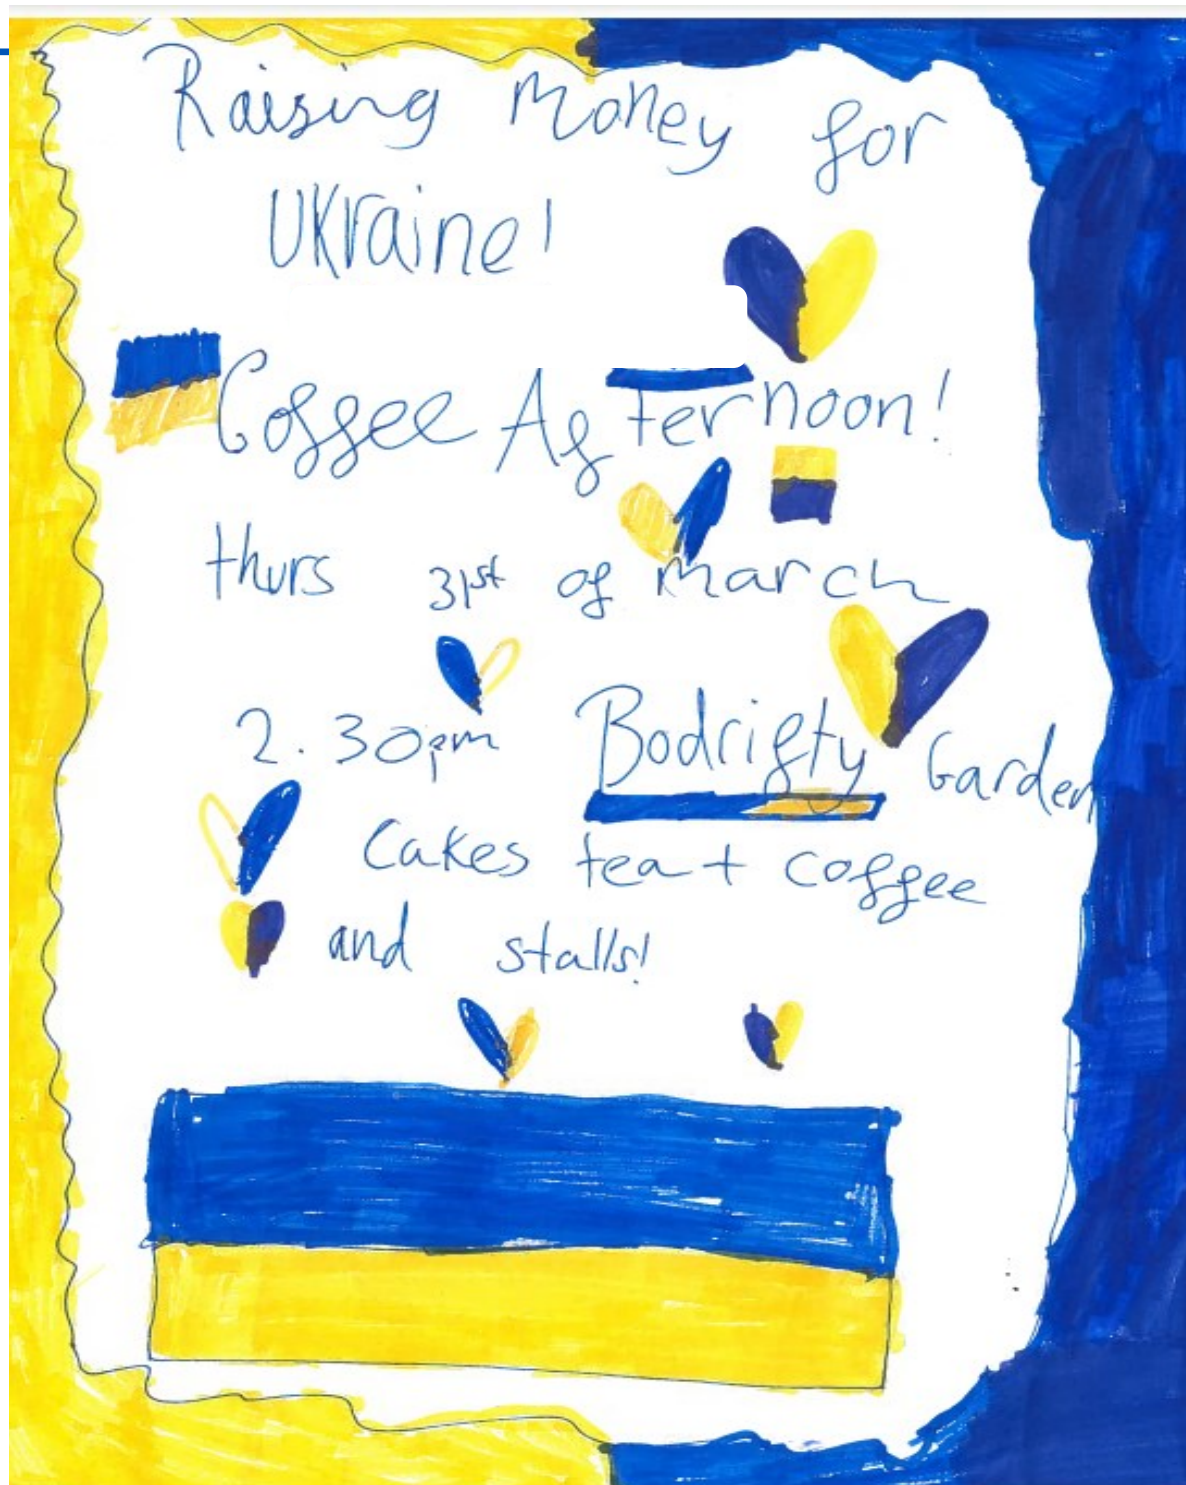 Raising money for
Ukraine!
Coffee Afternoon!
thurs 31st of march
2.30pm Bodrifty Garden
Cakes tea + coffee
and stalls!